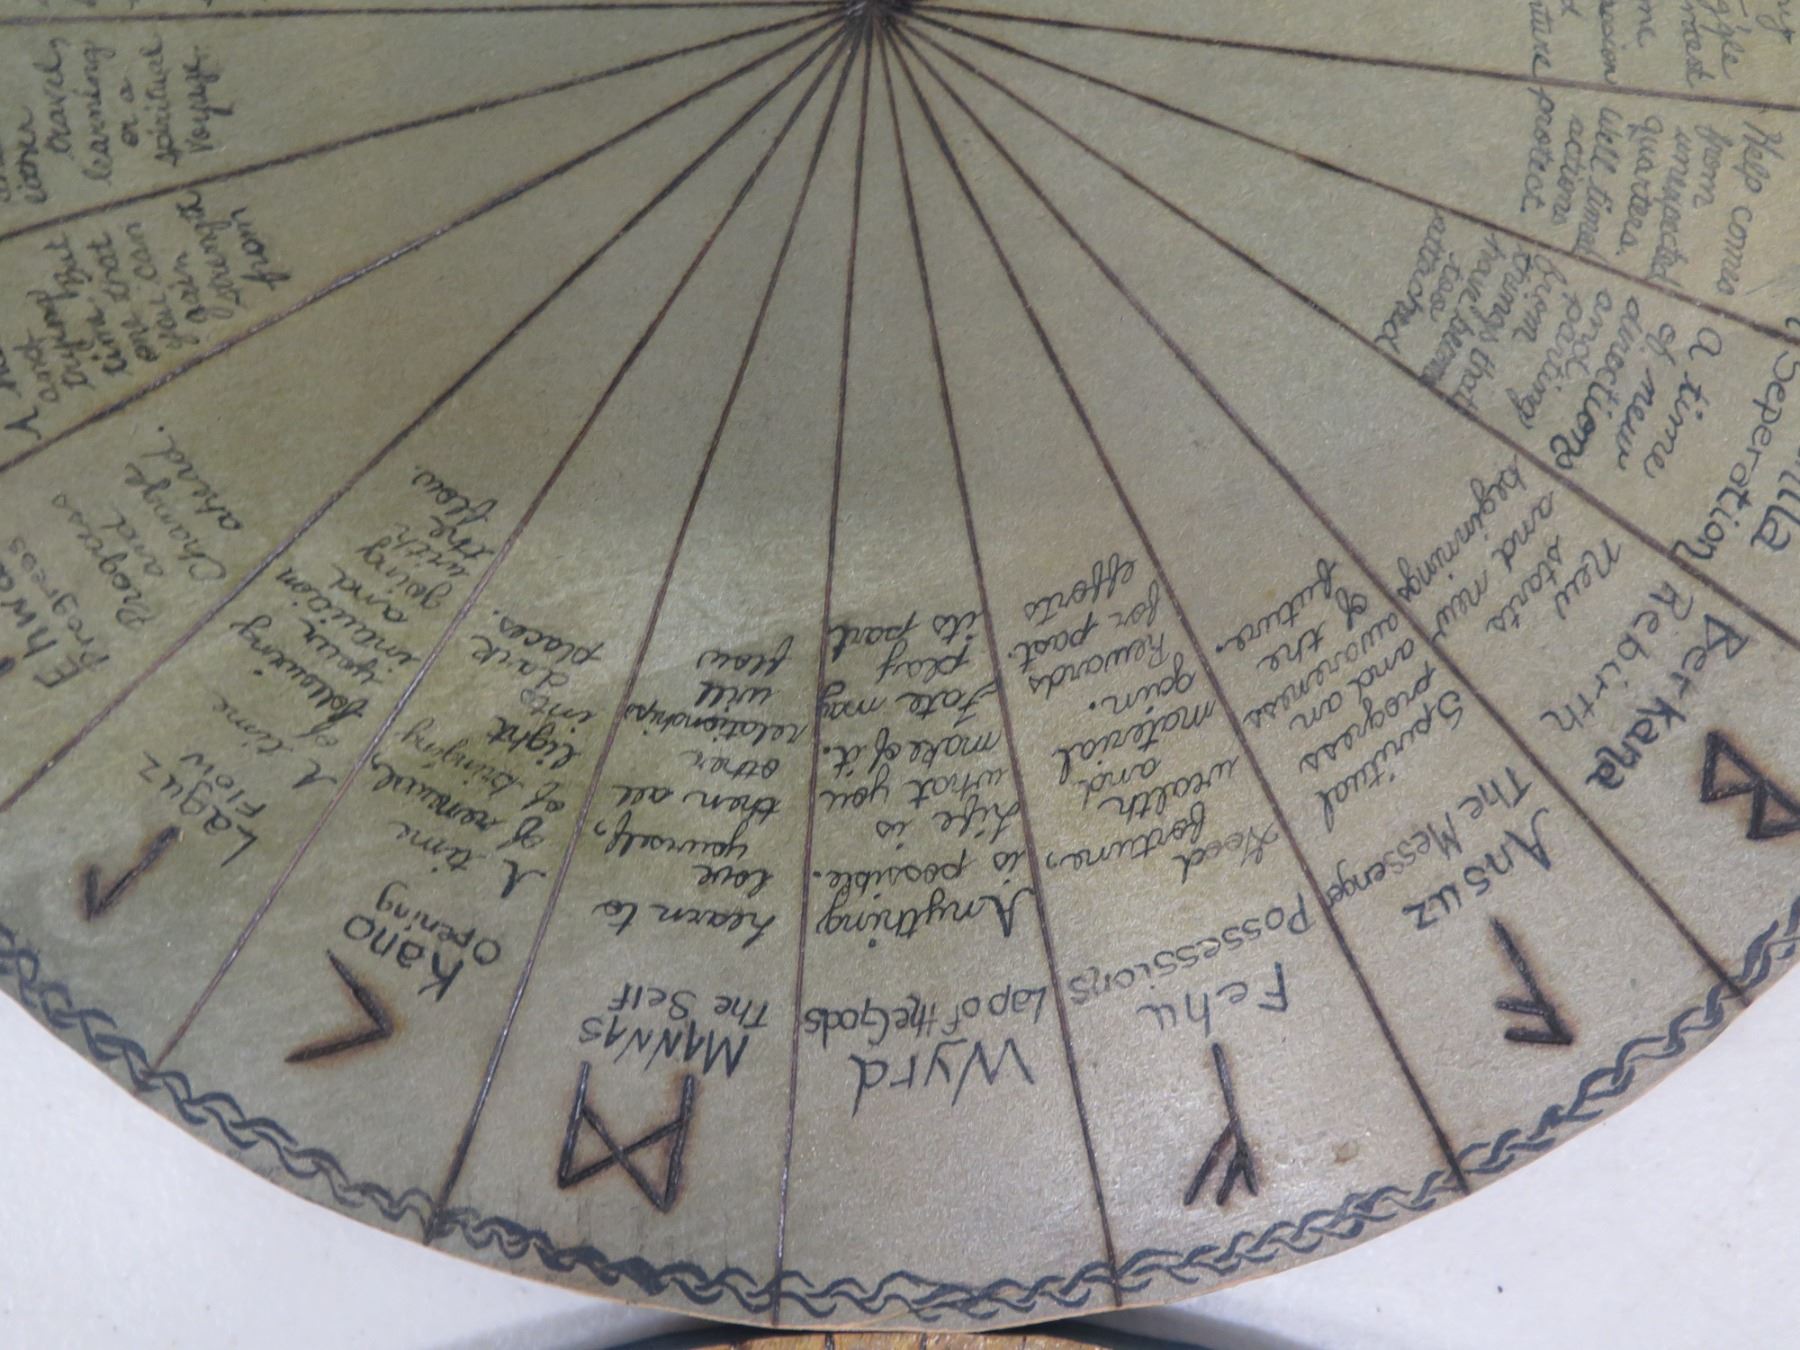 either
travel,
learning
or a
spiritual
voyage.
and
trying but
time that
one can
gain
from
Ehwa
Progress
Progress
and
Change
ahead.
Laguz
Flow
A time
of
following
your
intuition
and
going
with
the
flow.
Kano
Opening
A time
of renewal,
of bringing
light
into
dark
places.
MANNAS
The Self
Learn to
love
yourself,
then all
other
relationships
will
flow
Wyrd
Lap of the Gods
Anything
is possible.
Life is
what you
make of it.
Fate may
play
its part
Fehu
Possessions
Good
fortune,
wealth
and
material
gain.
Rewards
for past
efforts
Ansuz
The Messenger
Spiritual
progress
and an
awareness
of the
future.
Berkana
Rebirth
New
starts
and new
beginnings
Seperation
A time
of new
directions
and
parting
from
things that
have become
too
attached
Help comes
from
unexpected
quarters.
Well timed
actions
protect.